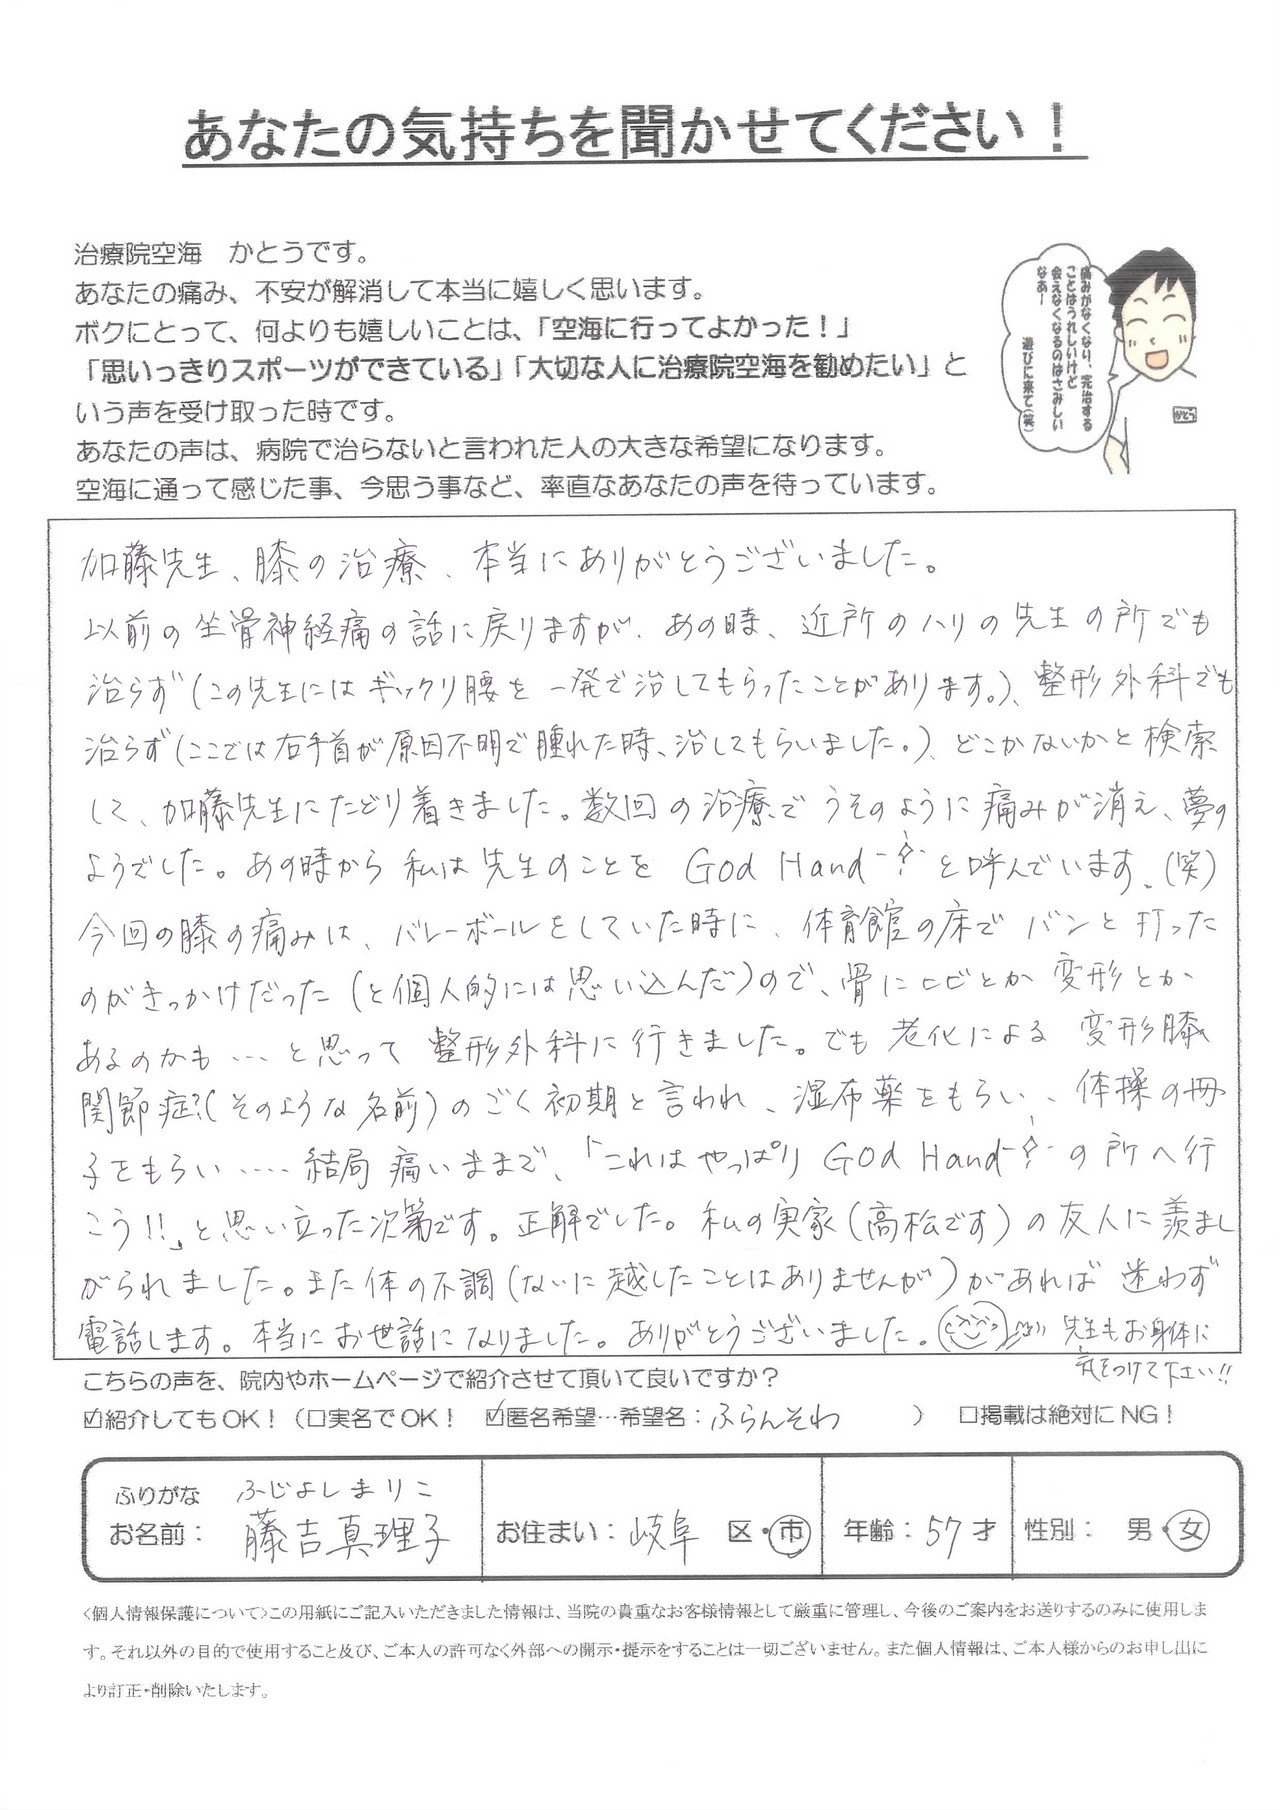 あなたの気持ちを聞かせてください！
治療院空海　かとうです。
あなたの痛み、不安が解消して本当に嬉しく思います。
ボクにとって、何よりも嬉しいことは、「空海に行ってよかった！」
「思いっきりスポーツができている」「大切な人に治療院空海を勧めたい」と
いう声を受け取った時です。
あなたの声は、病院で治らないと言われた人の大きな希望になります。
空海に通って感じた事、今思う事など、率直なあなたの声を待っています。
痛みがなくなり、完治する
ことはうれしいけど
会えなくなるのはさみしい
なあ～
遊びに来て(笑)
かとう
加藤先生、膝の治療、本当にありがとうございました。
以前の坐骨神経痛の話に戻りますが、あの時、近所のハリの先生の所でも
治らず(この先生にはギックリ腰を一発で治してもらったことがあります。)、整形外科でも
治らず(ここでは右手首が原因不明で腫れた時、治してもらいました。)、どこかないかと検索
して、加藤先生にたどり着きました。数回の治療でうそのように痛みが消え、夢の
ようでした。あの時から私は先生のことを God Hand と呼んでいます。(笑)
今回の膝の痛みは、バレーボールをしていた時に、体育館の床でバンと打った
のがきっかけだった(と個人的には思い込んだ)ので、骨にヒビとか変形とか
あるのかも…と思って整形外科に行きました。でも老化による変形膝
関節症?(そのような名前)のごく初期と言われ、湿布薬をもらい、体操の冊
子をもらい……結局痛いままで、「これはやっぱり God Hand の所へ行
こう!!」と思い立った次第です。正解でした。私の実家(高松です)の友人に羨まし
がられました。また体の不調(ないに越したことはありませんが)があれば迷わず
電話します。本当にお世話になりました。ありがとうございました。先生もお身体に
気をつけて下さい!!
こちらの声を、院内やホームページで紹介させて頂いて良いですか？
☑紹介してもOK！（□実名でOK！　☑匿名希望…希望名：ふらんそわ　）　□掲載は絶対にNG！
ふりがな　ふじよしまりこ
お名前：　藤吉真理子　お住まい：岐阜　区・市　年齢：57才　性別：　男・女
〈個人情報保護について〉この用紙にご記入いただきました情報は、当院の貴重なお客様情報として厳重に管理し、今後のご案内をお送りするのみに使用しま
す。それ以外の目的で使用すること及び、ご本人の許可なく外部への開示・提示をすることは一切ございません。また個人情報は、ご本人様からのお申し出に
より訂正・削除いたします。